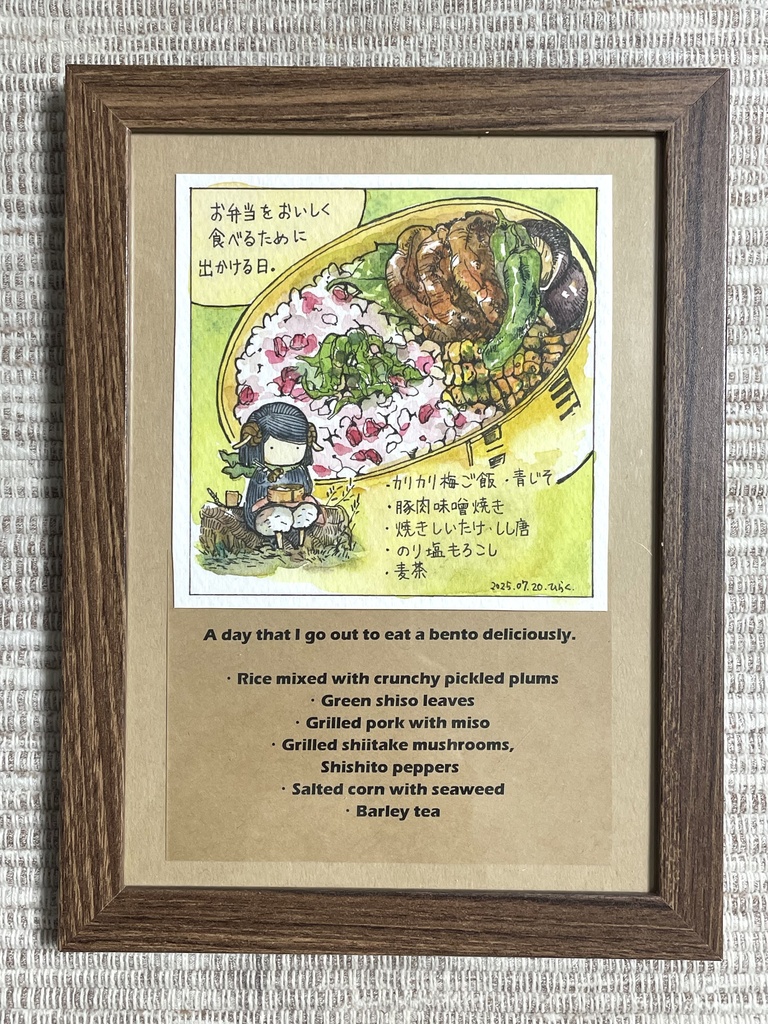 お弁当をおいしく
食べるために
出かける日。
・カリカリ梅ご飯 ・青じそ
・豚肉味噌焼き
・焼きしいたけ・しし唐
・のり塩もろこし
・麦茶
2025.07.20.ひらく.
A day that I go out to eat a bento deliciously.
・Rice mixed with crunchy pickled plums
・Green shiso leaves
・Grilled pork with miso
・Grilled shiitake mushrooms,
Shishito peppers
・Salted corn with seaweed
・Barley tea